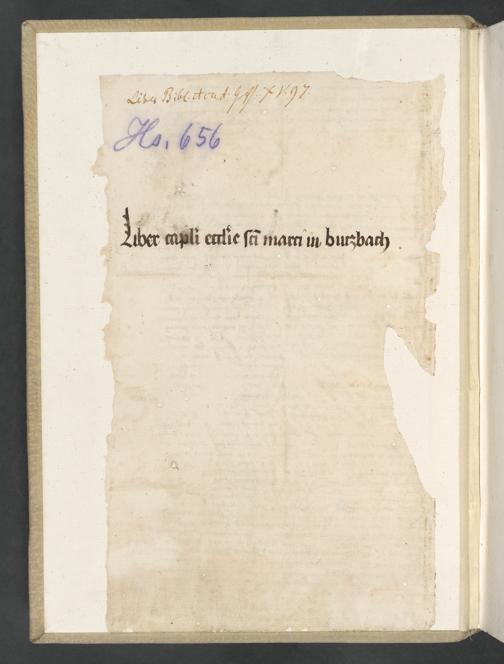 Liber Bibl. Acad. Giss. XV. 97
Hs. 656
Liber capli eccl̄ie sc̄i marci in butzbach